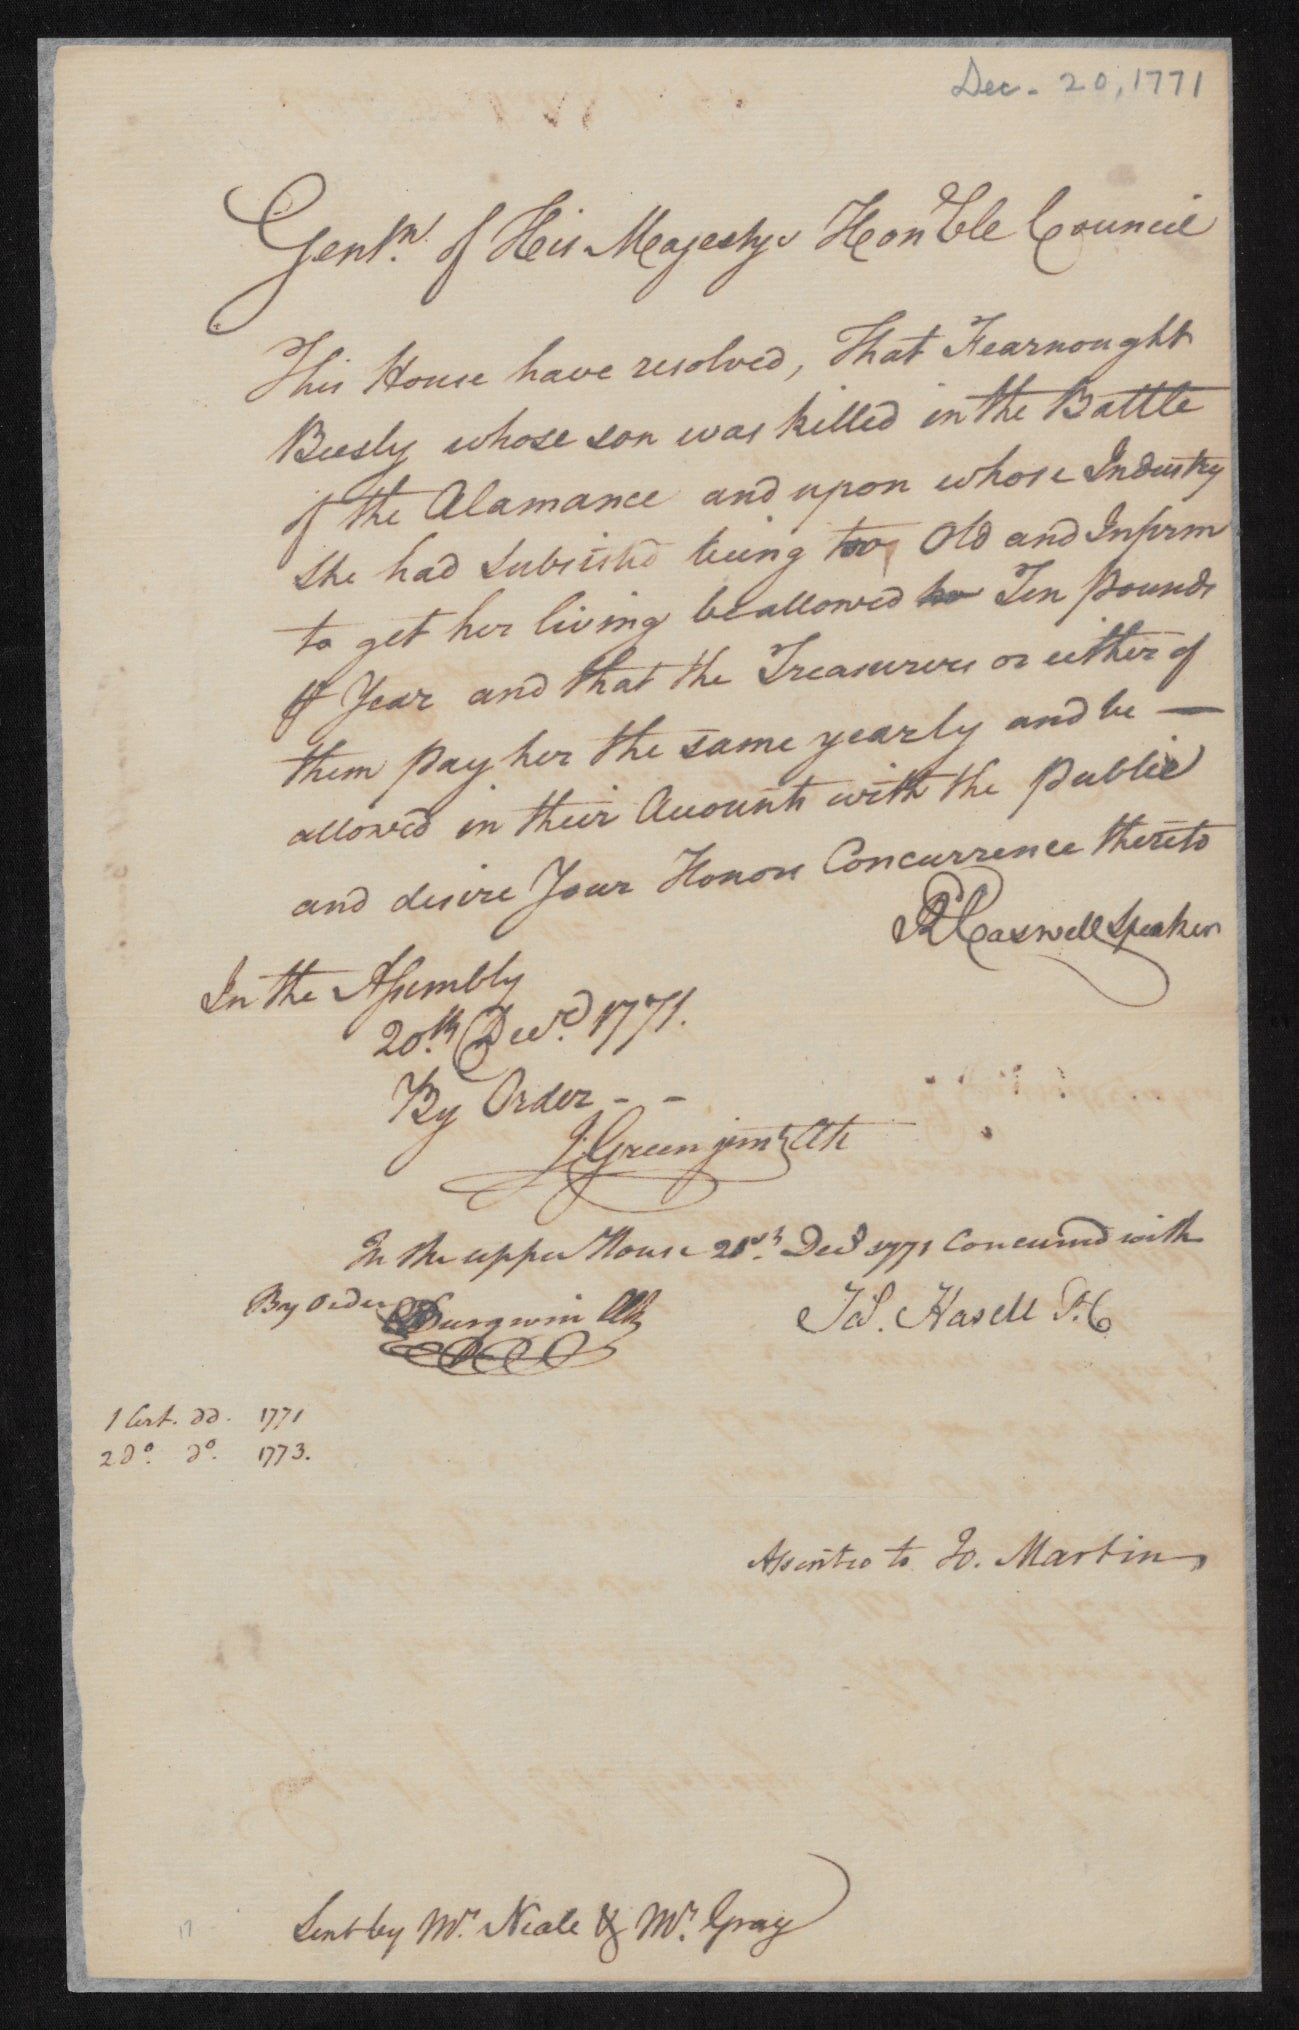 Dec. 20, 1771
Gentn. of His Majestys Honble Council
This House have resolved, That Fearnought
Beesly whose son was killed in the Battle
of the Alamance and upon whose Industry
she had subsisted being too Old and Infirm
to get her living be allowed Ten pounds
⅌ Year and that the Treasurers or either of
them pay her the same yearly and be —
allowed in their Accounts with the public
and desire Your Honors Concurrence thereto
Rd Caswell Speaker
In the Assembly
20th. Decr. 1771.
By Order - -
J. Green junr Clk
In the upper House 21st. Decr 1771 Concurred with
By Order
Burgwin Clk
Jas. Hasell P. C
1 Cert. dd. 1771
2 do. do. 1773.
Assented to Jo. Martin
Sent by Mr. Neale & Mr. Gray
17